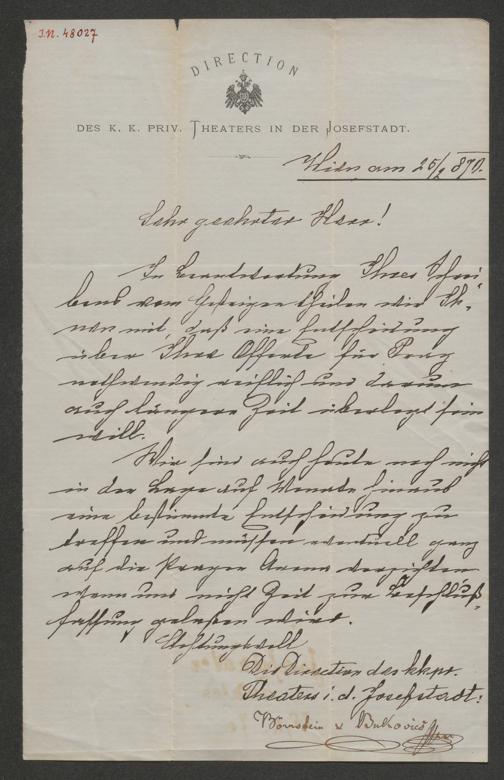 I.N. 48027
DIRECTION
DES K. K. PRIV. THEATERS IN DER JOSEFSTADT.
Wien, am 25/2 870.
Sehr geehrter Herr!
In Beantwortung Ihres Schrei-
bens vom Gestrigen theilen wir Ih-
nen mit, daß eine Entscheidung
über Ihre Offerte für Prag
nothwendig reiflich und darum
auch längere Zeit überlegt sein
will.
Wir sind auch heute noch nicht
in der Lage auf Monate hinaus
eine bestimmte Entscheidung zu
treffen und müssen eventuell ganz
auf die Prager Arena verzichten
wenn uns nicht Zeit zur Beschluß-
fassung gelassen wird.
Achtungsvoll
Die Direction des kk pr.
Theaters i. d. Josefstadt:
Bornstein v Bukovics